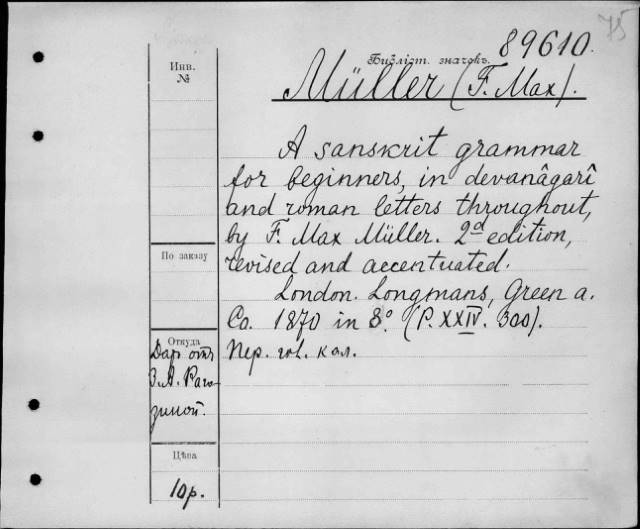 75
89610.
Библіот. значокъ.
Инв.
№
Müller (F. Max).
A sanskrit grammar
for beginners, in devanâgarî
and roman letters throughout,
by F. Max Müller. 2d edition,
revised and accentuated.
London. Longmans, Green a.
Co. 1870 in 8º. (P. XXIV. 300).
Пер. гол. кол.
По заказу
Откуда
Даръ отъ
З. А. Раго-
зиной.
Цѣна
10р.